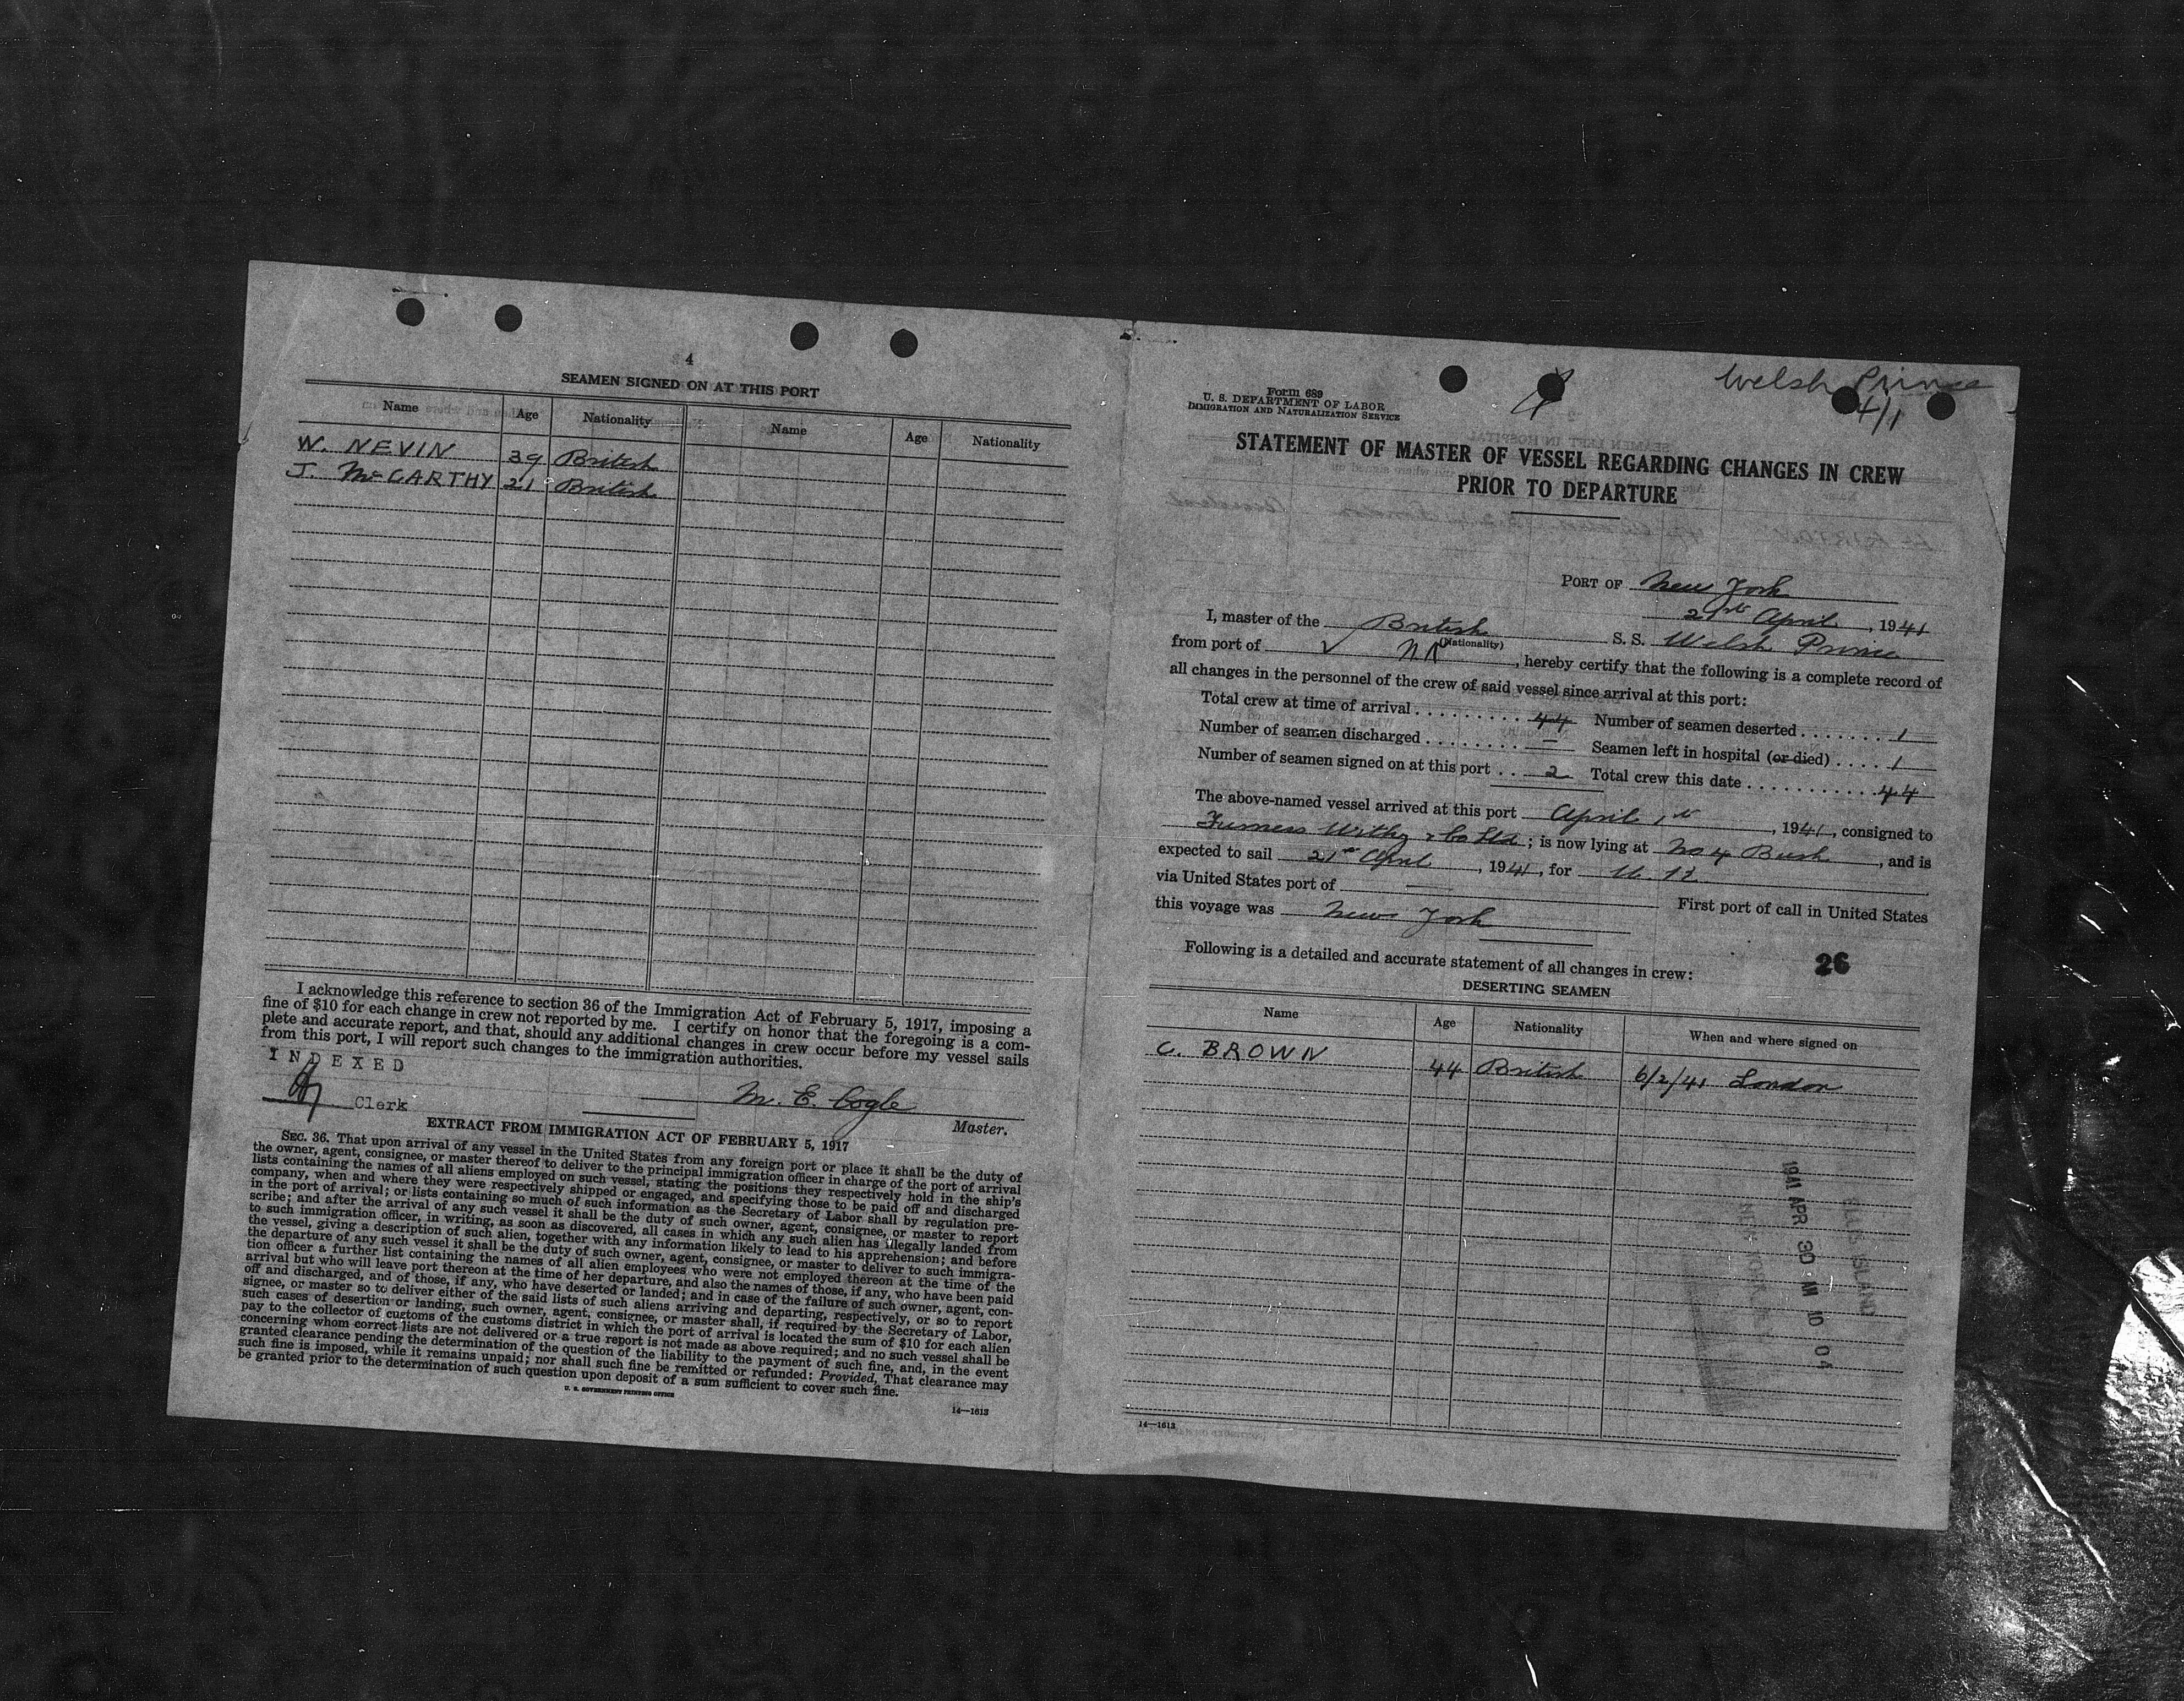 4
SEAMEN SIGNED ON AT THIS PORT
Name Age Nationality Name Age Nationality
W. NEVIN 39 British
J. McCARTHY 21 British
I acknowledge this reference to section 36 of the Immigration Act of February 5, 1917, imposing a
fine of $10 for each change in crew not reported by me. I certify on honor that the foregoing is a com-
plete and accurate report, and that, should any additional changes in crew occur before my vessel sails
from this port, I will report such changes to the immigration authorities.
INDEXED
Clerk
M. E. Cogle
Master.
EXTRACT FROM IMMIGRATION ACT OF FEBRUARY 5, 1917
SEC. 36. That upon arrival of any vessel in the United States from any foreign port or place it shall be the duty of
the owner, agent, consignee, or master thereof to deliver to the principal immigration officer in charge of the port of arrival
lists containing the names of all aliens employed on such vessel, stating the positions they respectively hold in the ship's
company, when and where they were respectively shipped or engaged, and specifying those to be paid off and discharged
in the port of arrival; or lists containing so much of such information as the Secretary of Labor shall by regulation pre-
scribe; and after the arrival of any such vessel it shall be the duty of such owner, agent, consignee, or master to report
to such immigration officer, in writing, as soon as discovered, all cases in which any such alien has illegally landed from
the vessel, giving a description of such alien, together with any information likely to lead to his apprehension; and before
the departure of any such vessel it shall be the duty of such owner, agent, consignee, or master to deliver to such immigra-
tion officer a further list containing the names of all alien employees who were not employed thereon at the time of the
arrival but who will leave port thereon at the time of her departure, and also the names of those, if any, who have been paid
off and discharged, and of those, if any, who have deserted or landed; and in case of the failure of such owner, agent, con-
signee, or master so to deliver either of the said lists of such aliens arriving and departing, respectively, or so to report
such cases of desertion or landing, such owner, agent, consignee, or master shall, if required by the Secretary of Labor,
pay to the collector of customs of the customs district in which the port of arrival is located the sum of $10 for each alien
concerning whom correct lists are not delivered or a true report is not made as above required; and no such vessel shall be
granted clearance pending the determination of the question of the liability to the payment of such fine, and, in the event
such fine is imposed, while it remains unpaid; nor shall such fine be remitted or refunded: Provided, That clearance may
be granted prior to the determination of such question upon deposit of a sum sufficient to cover such fine.
U. S. GOVERNMENT PRINTING OFFICE
14—1613
Welsh Prince
4/1
Form 689
U. S. DEPARTMENT OF LABOR
IMMIGRATION AND NATURALIZATION SERVICE
STATEMENT OF MASTER OF VESSEL REGARDING CHANGES IN CREW
PRIOR TO DEPARTURE
PORT OF New York
21st April, 1941
I, master of the British S. S. Welsh Prince
(Nationality)
from port of , hereby certify that the following is a complete record of
all changes in the personnel of the crew of said vessel since arrival at this port:
Total crew at time of arrival 44 Number of seamen deserted 1
Number of seamen discharged — Seamen left in hospital (or died) 1
Number of seamen signed on at this port 2 Total crew this date 44
The above-named vessel arrived at this port April 1st, 1941, consigned to
Furness Withy & Co Ltd; is now lying at No 4 Bush, and is
expected to sail 21st April, 1941, for
via United States port of — First port of call in United States
this voyage was New York
Following is a detailed and accurate statement of all changes in crew:
26
DESERTING SEAMEN
Name Age Nationality When and where signed on
C. BROWN 44 British 6/2/41 London
1941 APR 30 AM 10 04
ELLIS ISLAND
14—1613